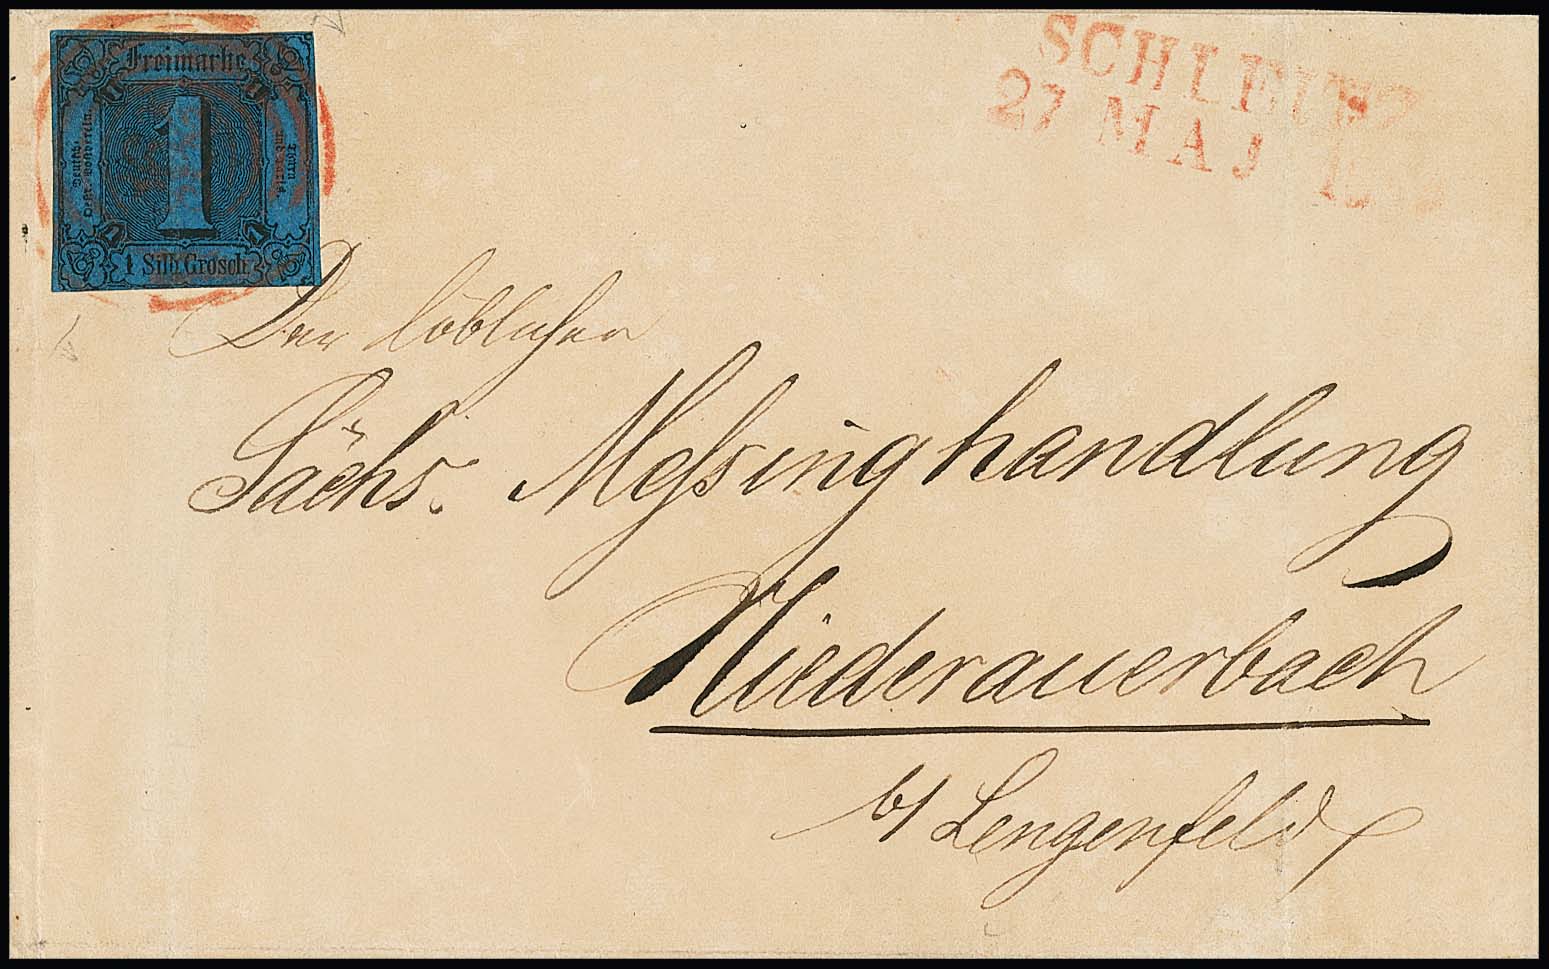 Freimarke
1
Deutsch. Oestr. Postverein.
Thurn und Taxis
1 Silb. Grosch.
SCHLEITZ
27 MAJ
Der löblichen
Sächs. Meßsinghandlung
Niederauerbach
b/ Lengenfeld